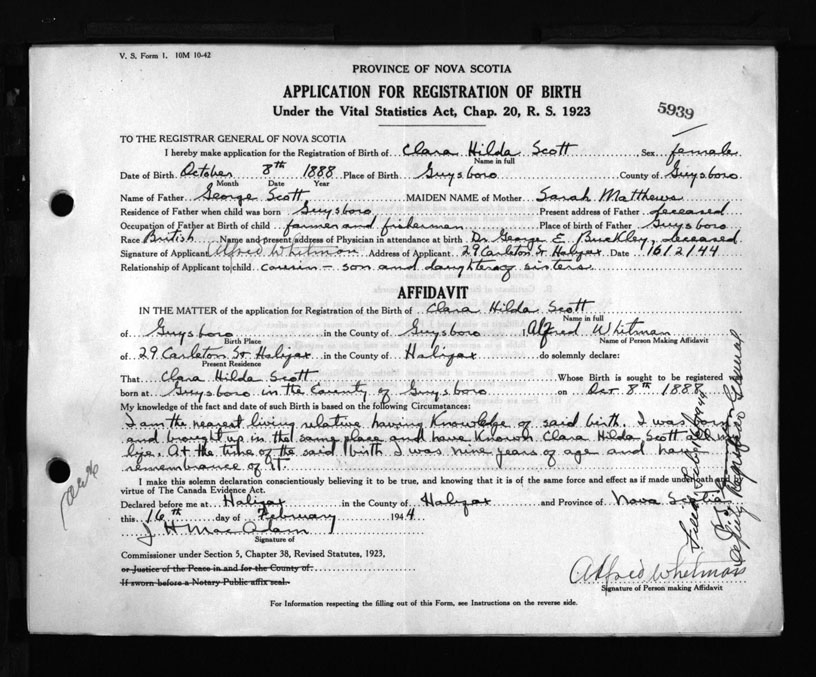 V. S. Form 1. 10M 10-42
PROVINCE OF NOVA SCOTIA
APPLICATION FOR REGISTRATION OF BIRTH
Under the Vital Statistics Act, Chap. 20, R. S. 1923
5939
TO THE REGISTRAR GENERAL OF NOVA SCOTIA
I hereby make application for the Registration of Birth of Clara Hilda Scott Sex female
Name in full
Date of Birth October 8th 1888 Place of Birth Guysboro County of Guysboro
Month Date Year
Name of Father George Scott MAIDEN NAME of Mother Sarah Matthews
Residence of Father when child was born Guysboro Present address of Father deceased
Occupation of Father at Birth of child farmer and fisherman Place of birth of Father Guysboro
Race British Name and present address of Physician in attendance at birth Dr. George E. Buckley, deceased
Signature of Applicant Alfred Whitman Address of Applicant 29 Carleton St Halifax Date 16/2/44
Relationship of Applicant to child cousin - son and daughter of sisters
AFFIDAVIT
IN THE MATTER of the application for Registration of the Birth of Clara Hilda Scott
Name in full
of Guysboro in the County of Guysboro I, Alfred Whitman
Birth Place Name of Person Making Affidavit
of 29 Carleton St. Halifax in the County of Halifax do solemnly declare:
Present Residence
That Clara Hilda Scott Whose Birth is sought to be registered was
born at Guysboro in the County of Guysboro on Oct. 8th 1888
My knowledge of the fact and date of such Birth is based on the following Circumstances:
I am the nearest living relative having Knowledge of said birth. I was born
and brought up in the same place and have Known Clara Hilda Scott all my
life. At the time of the said birth I was nine years of age and have
remembrance of it.
I make this solemn declaration conscientiously believing it to be true, and knowing that it is of the same force and effect as if made under oath and by
virtue of The Canada Evidence Act.
Declared before me at Halifax in the County of Halifax and Province of Nova Scotia
this 16th day of February 1944
J H MacAdam
Signature of
Commissioner under Section 5, Chapter 38, Revised Statutes, 1923,
or Justice of the Peace in and for the County of:
If sworn before a Notary Public affix seal.
Alfred Whitman
Signature of Person making Affidavit
For Information respecting the filling out of this Form, see Instructions on the reverse side.
Deputy Registrar General